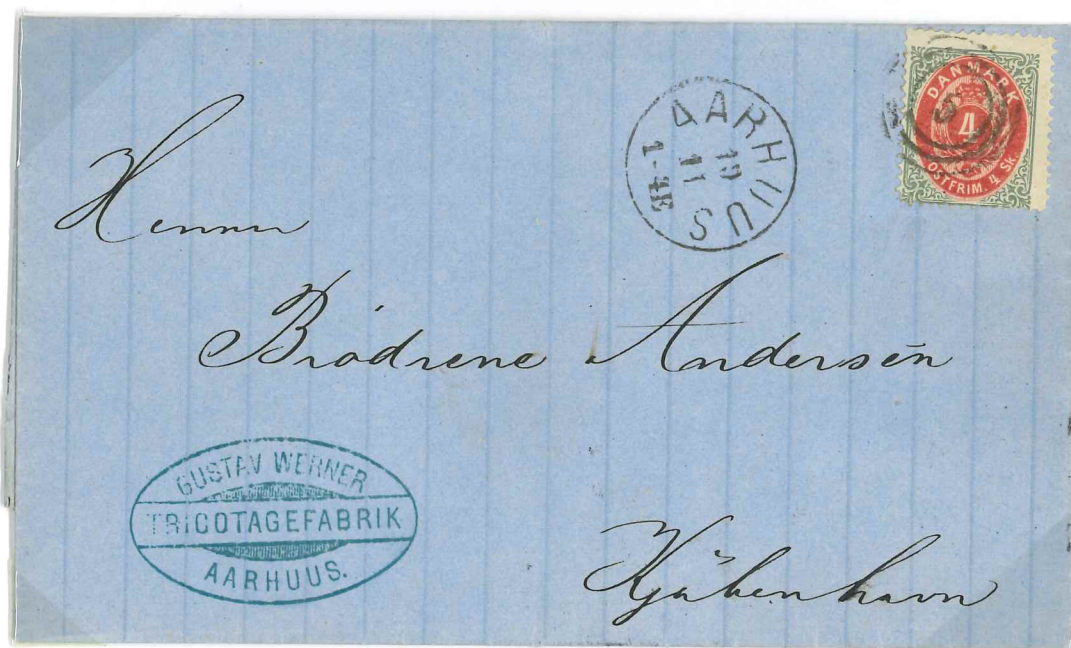 DANMARK
4
POSTFRIM. 4 Sk.
5
AARHUUS
19
11
1-4E
Herrer
Brödrene Andersen
GUSTAV WERNER
TRICOTAGEFABRIK
AARHUUS.
Kjöbenhavn